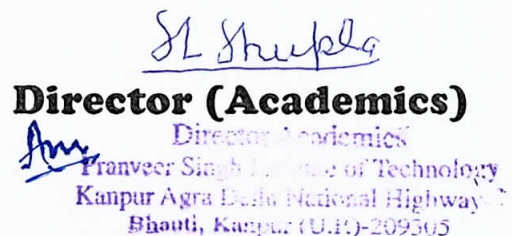 SL Shukla
Director (Academics)
Director Academics
Pranveer Singh Institute of Technology
Kanpur Agra Delhi National Highway-2
Bhauti, Kanpur (U.P.)-209305